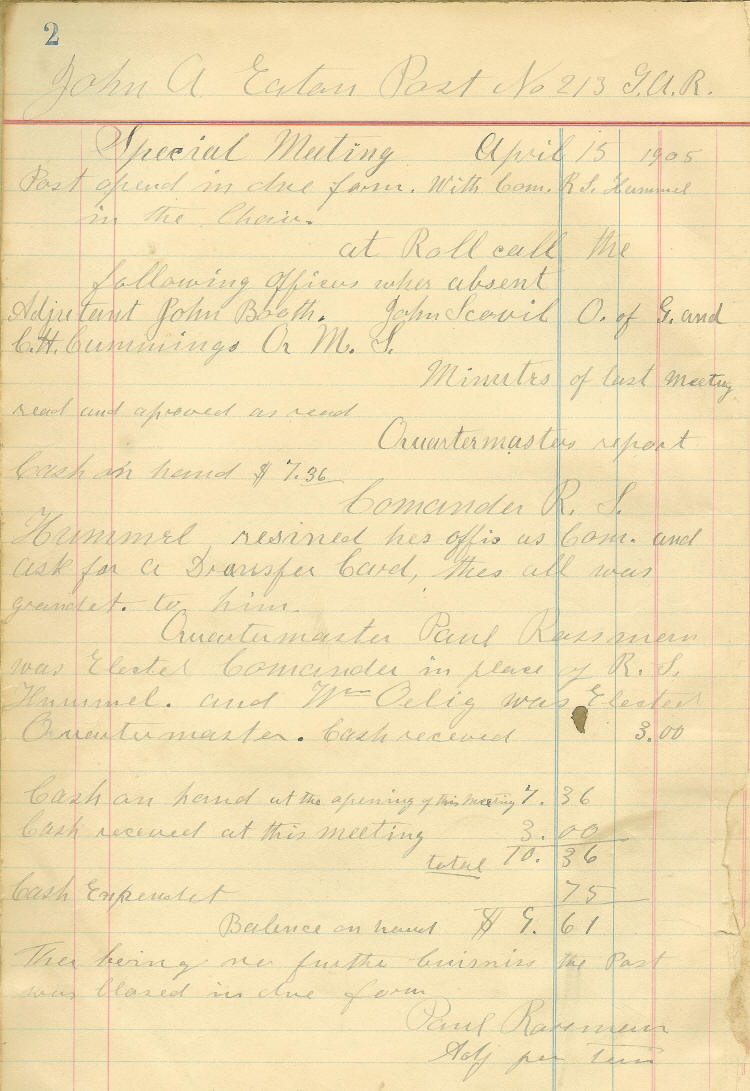 2
John A Eaton Post No 213 G.A.R.
Special Meeting April 15 1905
Post opend in due form. With Com. R S. Hummel
in the Chair.
at Roll call the
following officers wher absent
Adjutant John Booth. John Scovil O. of G. and
C.H. Cummings Qr M. S.
Minutes of last meeting
read and aproved as read
Quartermasters report
Cash on hand $ 7.36
Comander R. S.
Hummel resined hes offis as Com. and
ask for a Transfer Card, thes all was
grandet. to him.
Quartermaster Paul Rassmein
was Elected Comander in place of R. S.
Hummel. and Wm Oelig was Elected
Quartermaster. Cash receved 3.00
Cash on hand at the opening of this Meeting 7. 36
Cash receved at this meeting 3. 00
total 10. 36
Cash Expendet 75
Balence on hand $ 9. 61
Ther being no furthe buisniss the Post
was Closed in due form
Paul
Adj per tem